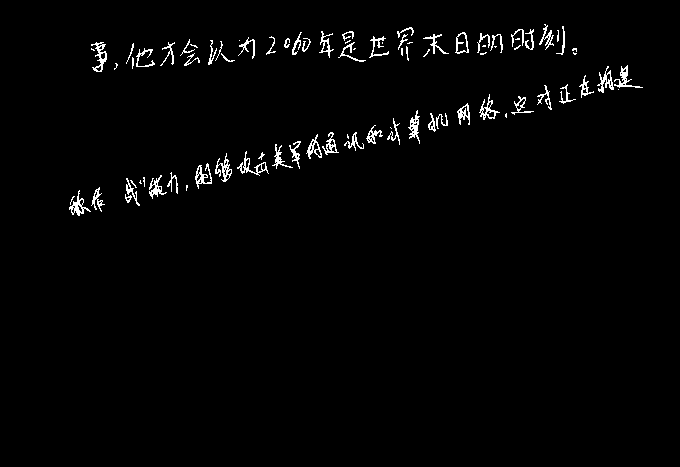 事,他才会认为2060年是世界末日的时刻。
战"能力,能够攻击美军的通讯和计算机网络,这对正在